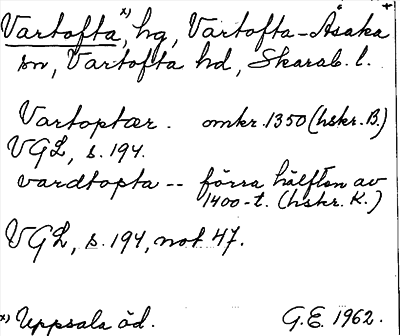 Vartofta x), hg, Vartofta-Åsaka +
sn, Vartofta hd, Skarab. l.
Vartoptær. omkr. 1350 (hskr. B.)
VGL, s. 194.
vardtopta -- förra hälften av
1400-t. (hskr. K.)
VGL, s. 194, not 47.
x) Uppsala öd. G.E. 1962.